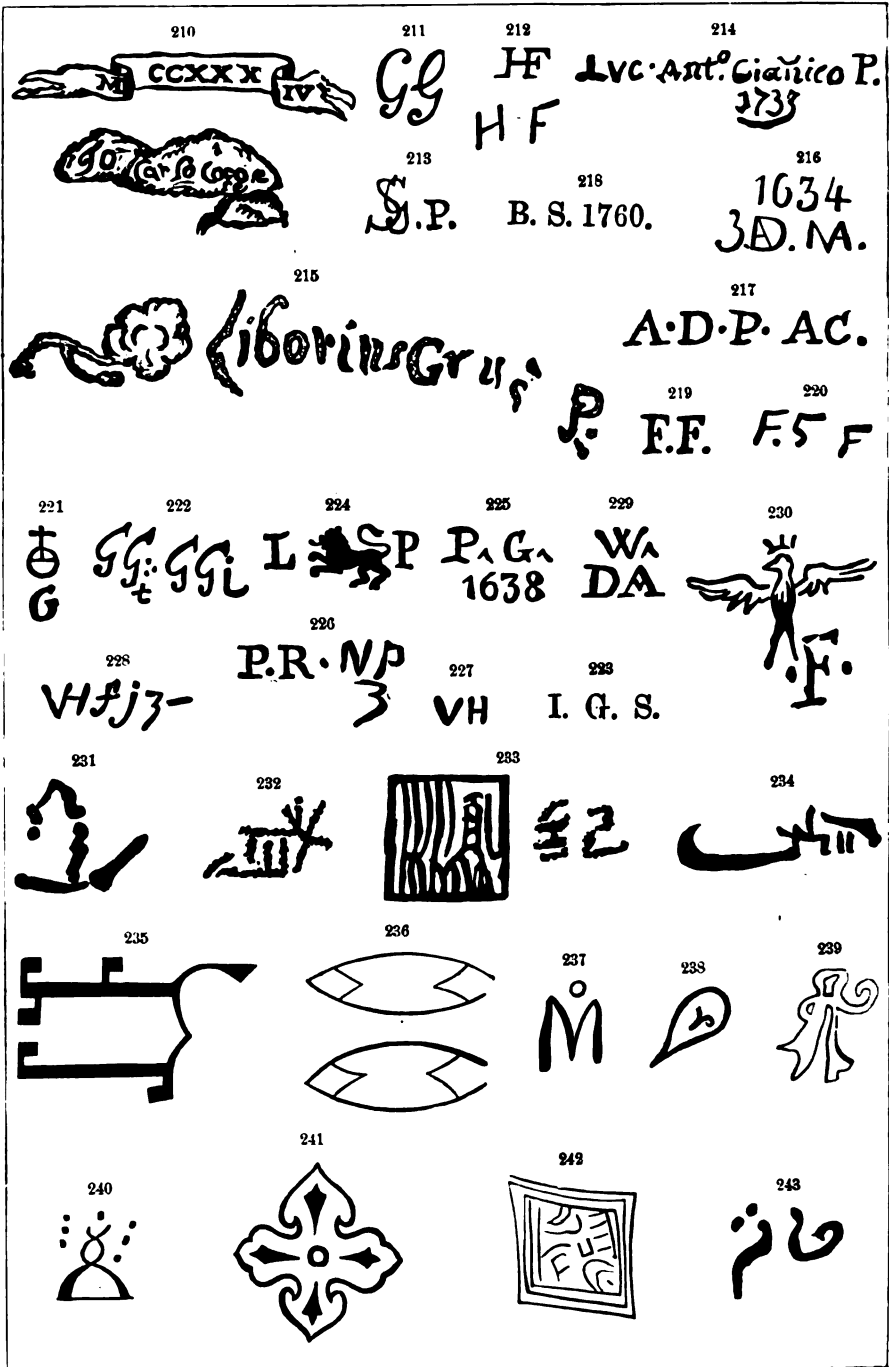 210
M CCXXX IV
211
GG
212
HF
H F
214
Luc·Ant.º Giañico P.
1733
190
Carlo Coccorese
213
SG.P.
218
B. S. 1760.
216
1634
3D. M.
215
Liborius Grus
P.
217
A·D·P· AC.
219
F.F.
220
F. 5 F
221
G
222
GG: GGi
t
224
L P
225
P. G.
1638
229
W
DA
230
·F·
228
VHfj3-
226
P.R· NP
3
227
VH
223
I. G. S.
231
232
233
234
235
236
237
M
238
239
240
241
242
243